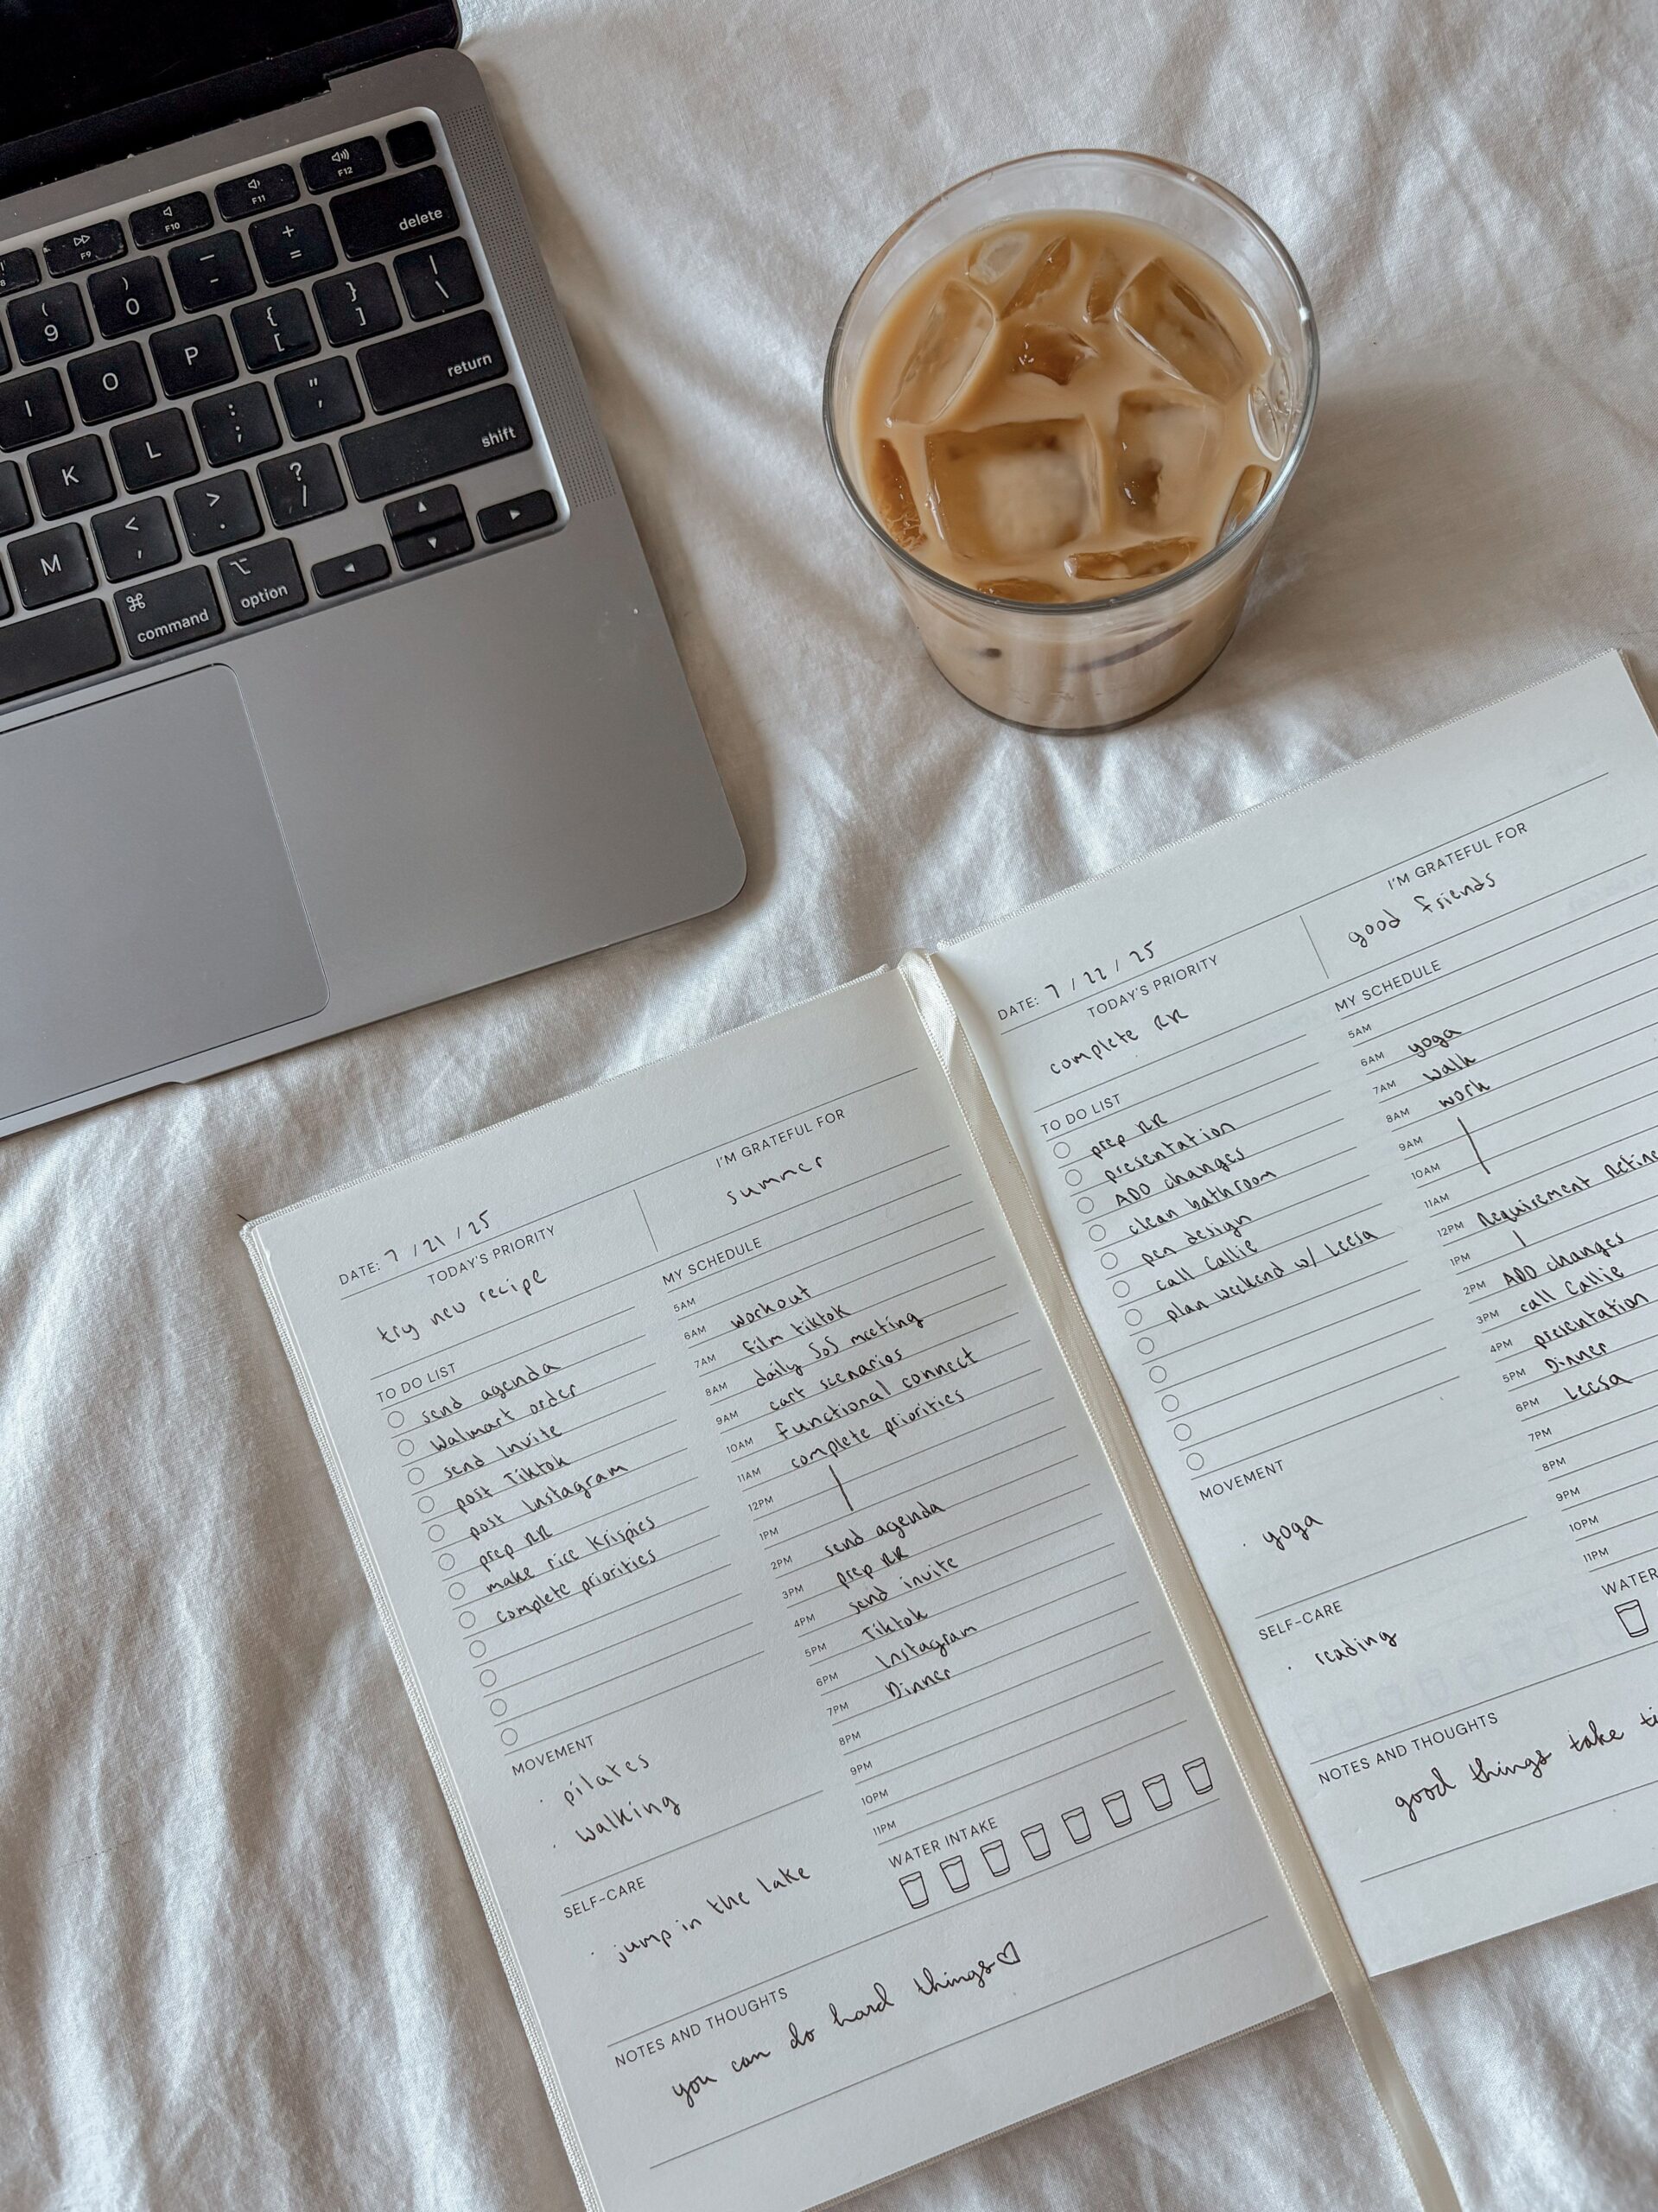 F12
F11
F10
F9
delete
+
=
_
-
)
0
(
9
|
\
}
]
{
[
P
O
I
return
"
'
:
;
L
K
shift
?
/
>
.
<
,
M
option
⌘
command
DATE: 7 / 21 / 25
TODAY'S PRIORITY
try new recipe
I'M GRATEFUL FOR
summer
TO DO LIST
send agenda
Walmart order
send Invite
post Tiktok
post Instagram
prep RR
make rice krispies
complete priorities
MOVEMENT
· pilates
· walking
SELF-CARE
· jump in the lake
MY SCHEDULE
5AM
6AM workout
7AM film tiktok
8AM daily SoS meeting
9AM cart scenarios
10AM functional connect
11AM complete priorities
12PM
1PM
2PM send agenda
3PM prep RR
4PM send invite
5PM Tiktok
6PM Instagram
7PM Dinner
8PM
9PM
10PM
11PM
WATER INTAKE
NOTES AND THOUGHTS
you can do hard things♡
DATE: 7 / 22 / 25
TODAY'S PRIORITY
complete RR
I'M GRATEFUL FOR
good friends
TO DO LIST
prep RR
presentation
ADO changes
clean bathroom
pen design
call Callie
plan weekend w/ Leesa
MOVEMENT
· yoga
SELF-CARE
· reading
MY SCHEDULE
5AM
6AM yoga
7AM walk
8AM work
9AM
10AM
11AM
12PM Requirement Refine
1PM
2PM ADO changes
3PM call Callie
4PM presentation
5PM Dinner
6PM Leesa
7PM
8PM
9PM
10PM
11PM
WATER
NOTES AND THOUGHTS
good things take ti